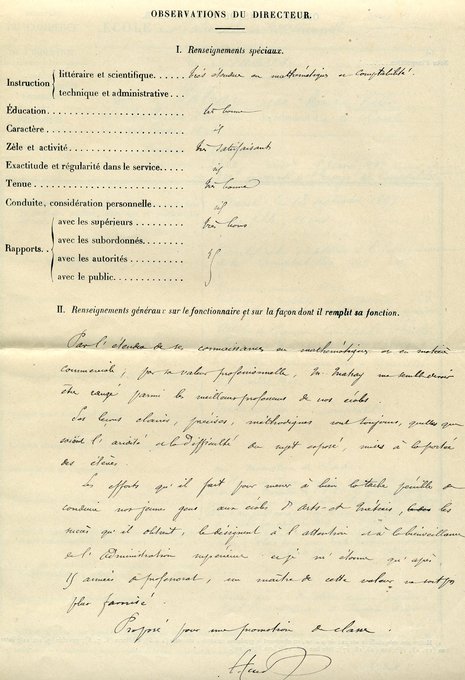 OBSERVATIONS DU DIRECTEUR.
I. Renseignements spéciaux.
Instruction
littéraire et scientifique..... très étendue en mathématiques et comptabilité.
technique et administrative...
Éducation............ très bonne
Caractère............ id
Zèle et activité............ très satisfaisants
Exactitude et régularité dans le service..... id
Tenue............ très bonne
Conduite, considération personnelle....... id
Rapports..
avec les supérieurs........ très bons
avec les subordonnés.......
avec les autorités..........
avec le public............
II. Renseignements généraux sur le fonctionnaire et sur la façon dont il remplit sa fonction.
Par l'étendue de ses connaissances en mathématiques et en matière
commerciale, par sa valeur professionnelle, M. me semble devoir
être rangé parmi les meilleurs professeurs de nos écoles.
Ses leçons claires, précises, méthodiques sont toujours, quelles que
soient l'aridité et la difficulté du sujet exposé, mises à la portée
des élèves.
Les efforts qu'il fait pour mener à bien la tâche pénible de
conduire nos jeunes gens aux écoles d'Arts et Métiers, les
succès qu'il obtient, le désignent à l'attention et à la bienveillance
de l'administration supérieure et je m'étonne qu'après
15 années de professorat, un maître de cette valeur ne soit pas
plus favorisé.
Proposé pour une promotion de classe.